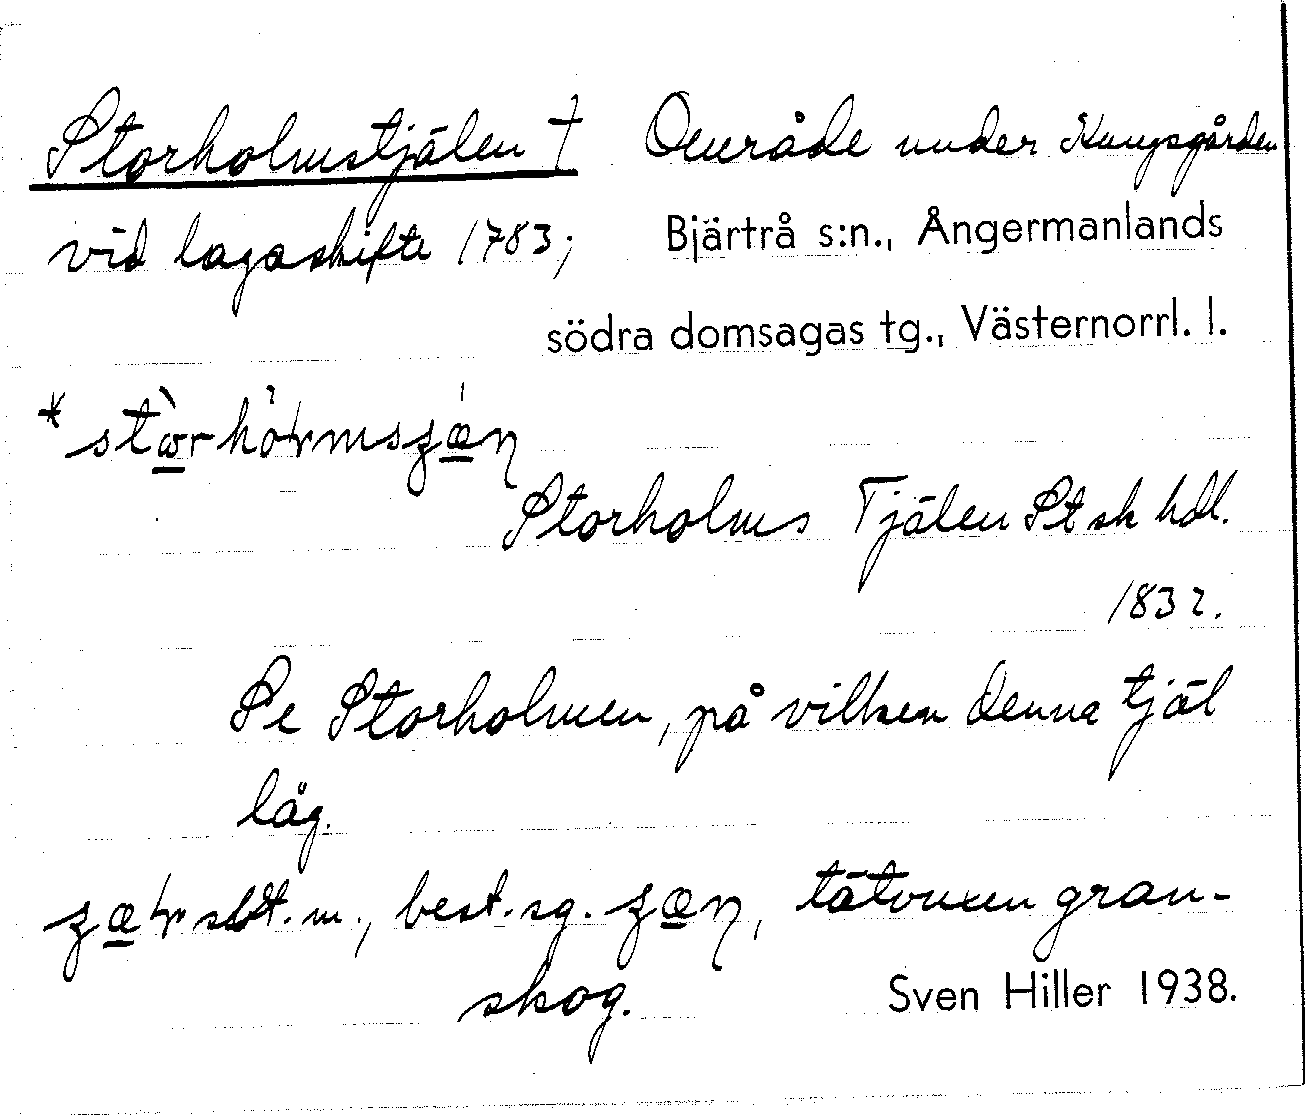 Storholmstjälen † Område under Kungsgården
vid lagaskifte 1783; Bjärtrå s:n., Ångermanlands
södra domsagas tg., Västernorrl. l.
Storholms Tjälen St sk hdl.
1832.
Se Storholmen, på vilken denna tjäl
låg.
sbst. m., best. sg. tätvuxen gran-
skog. Sven Hiller 1938.